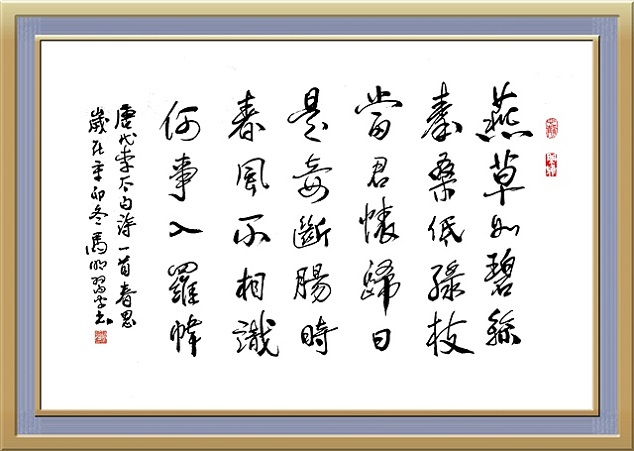 燕草如碧絲
秦桑低綠枝
當君懷歸日
是妾斷腸時
春風不相識
何事入羅幃
唐代李太白詩一首春思
歲在辛卯冬馬明